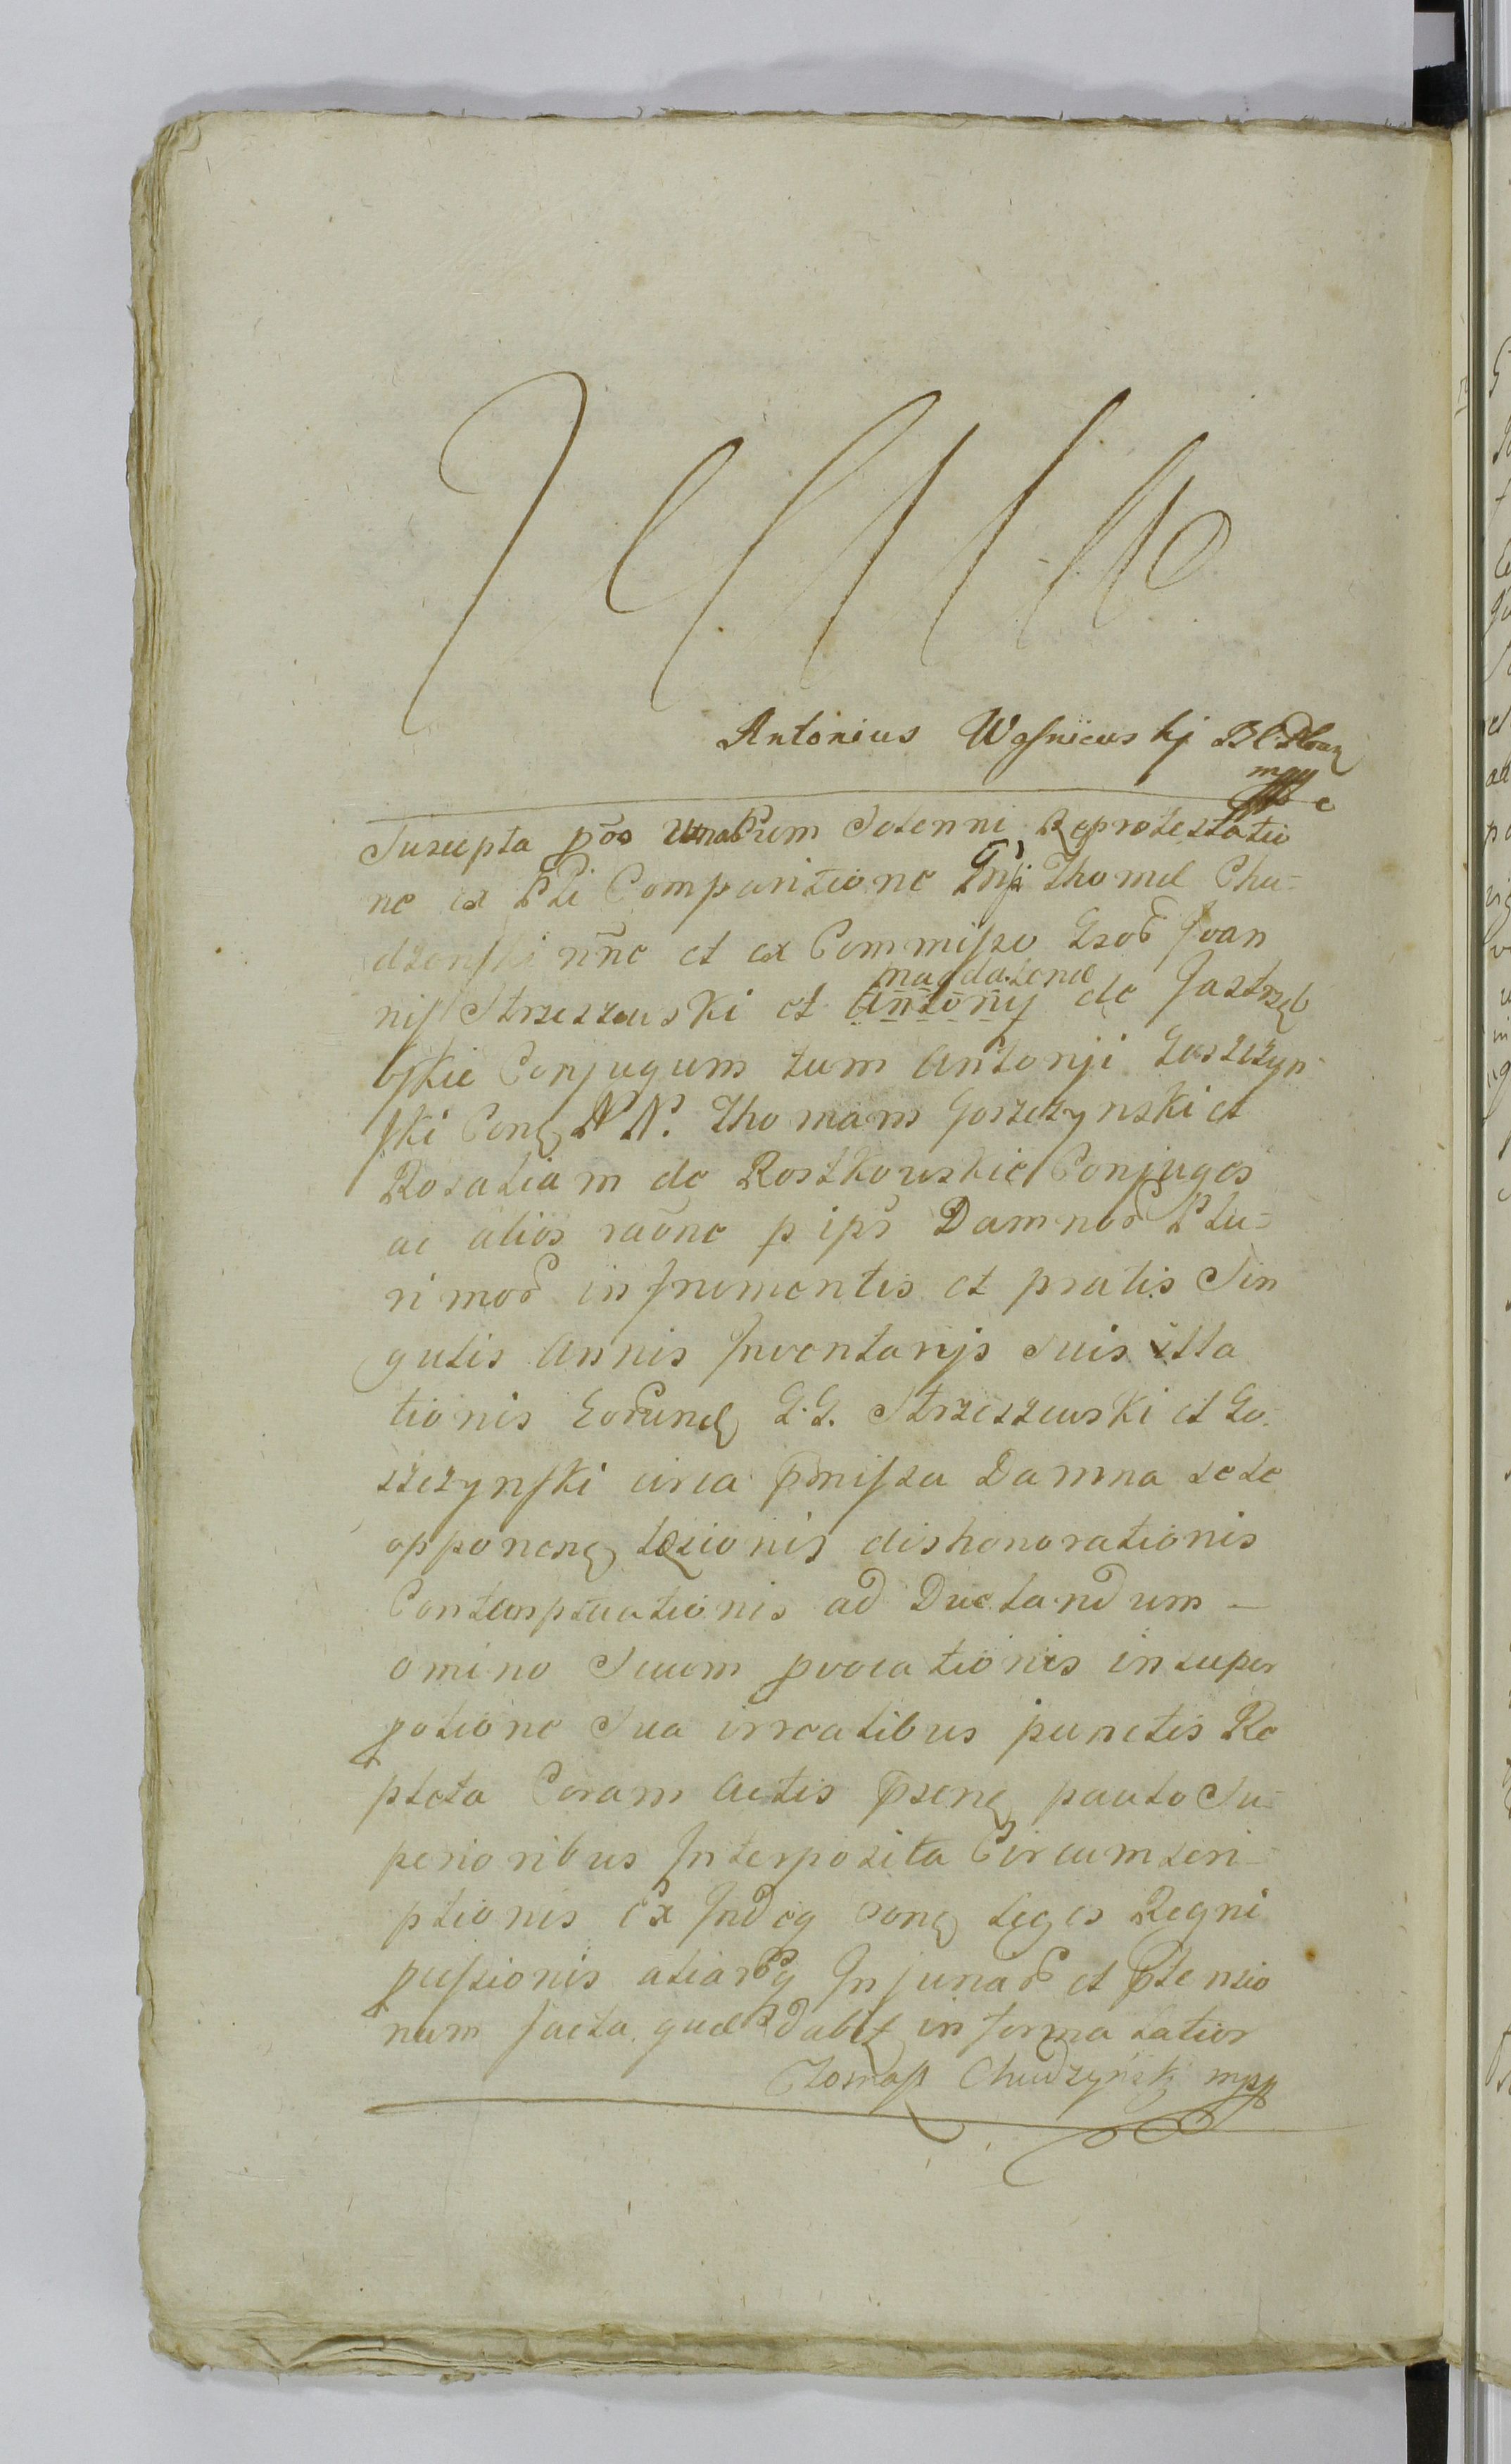 Antonius Wąsniewskj
Suscepta põs Solenni Reprotestatio
ne ex Pti Comparitione Gnsi Thomæ Chu-
dzynski nñe et ex Commisso Joan
nis Strzeszewski et Magdalenæ Antonij de Jastrzę
bskie Conjugum tum Antonji Goszczyn
ski Con NN. Thomam Goszczynski et
Rosaliam de Rostkowskie Conjuges
ac alios raõne p ips Damnor Plu-
rimor in frumentis et pratis Sin
gulis Annis Inventarijs suis illa
tionis Eorund G.G. Strzeszewski et Go-
szczynski circa pmissa Damna sese
opponen læsionis dishonorationis
Contemptuationis ad Ductandum —
omino Secum pvocationis insuper
potione Sua irrealibus punctis Re
pleta Coram Actis psen paulo Su-
perioribus Interposita Circumscri-
ptionis Ex Indeq Leges Regni
pussionis aliarq Injuriar et ptensio
num facta quæ dabit in forma latior
Tomasz Chudzynskj mpp